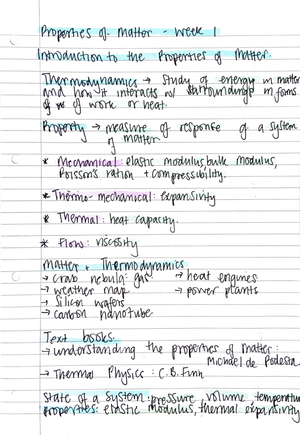 Properties of Matter - Week 1
Introduction to the Properties of Matter.
Thermodynamics → study of energy in matter
and how it interacts w/ surroundings in forms
of work or heat.
Property → measure of response of a system
of matter
* Mechanical: elastic modulus, bulk modulus,
Poisson's ration + compressibility.
* Thermo-mechanical: expansivity
* Thermal: heat capacity.
* Flow: viscosity
Matter + Thermodynamics
→ crab nebula: gas → heat engines
→ weather map → power plants
→ silicon wafers
→ carbon nanotube
Text books.
→ understanding the properties of matter:
Michael de Podesta
→ Thermal Physics: C.B. Finn
State of a System: pressure, volume, temperature
properties: elastic modulus, thermal expansivity